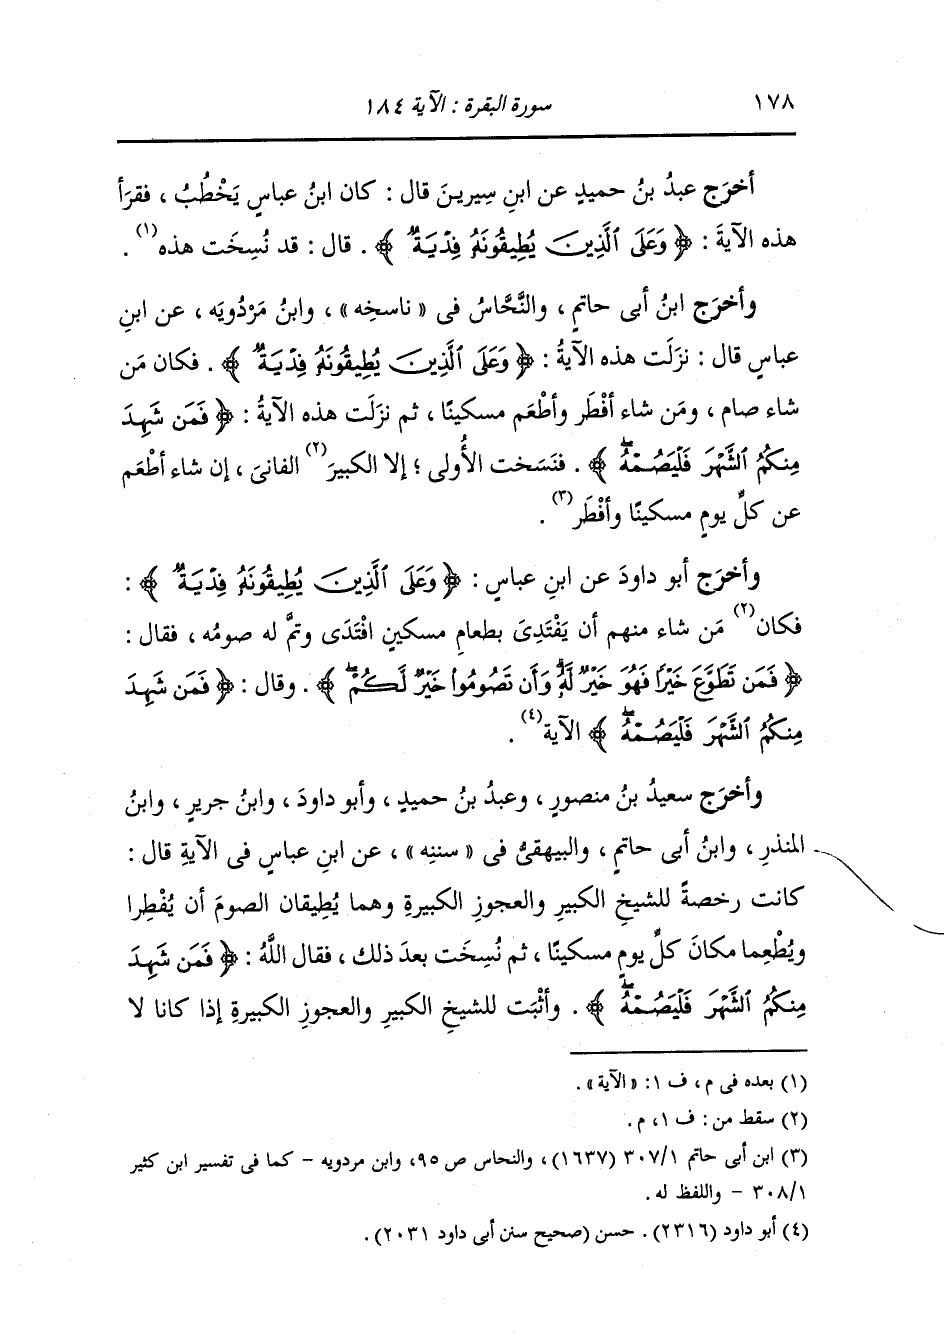 ١٧٨
سورة البقرة : الآية ١٨٤
أخرَج عبدُ بنُ حميدٍ عن ابنِ سِيرينَ قال : كان ابنُ عباسٍ يَخْطُبُ ، فقرَأ
هذه الآيةَ : ﴿ وَعَلَى ٱلَّذِينَ يُطِيقُونَهُۥ فِدْيَةٌ ﴾ . قال : قد نُسِخَت هذه(١) .
وأخرَج ابنُ أبى حاتمٍ ، والنَّحَّاسُ فى « ناسخِه » ، وابنُ مَرْدُويَه ، عن ابنِ
عباسٍ قال : نزَلَت هذه الآيةُ : ﴿ وَعَلَى ٱلَّذِينَ يُطِيقُونَهُۥ فِدْيَةٌ ﴾ . فكان مَن
شاء صام ، ومَن شاء أفْطَر وأطْعَم مسكينًا ، ثم نزَلَت هذه الآيةُ : ﴿ فَمَن شَهِدَ
مِنكُمُ ٱلشَّهْرَ فَلْيَصُمْهُۖ ﴾ . فنَسَخت الأُولى ؛ إلا الكبيرَ(٢) الفانىَ ، إن شاء أطْعَم
عن كلِّ يومٍ مسكينًا وأفْطَر(٣) .
وأخرَج أبو داودَ عن ابنِ عباسٍ : ﴿ وَعَلَى ٱلَّذِينَ يُطِيقُونَهُۥ فِدْيَةٌ ﴾ :
فكان(٢) مَن شاء منهم أن يَفْتَدِىَ بطعامِ مسكينٍ افْتَدَى وتمَّ له صومُه ، فقال :
﴿ فَمَن تَطَوَّعَ خَيْرًا فَهُوَ خَيْرٌ لَّهُۥۚ وَأَن تَصُومُوا۟ خَيْرٌ لَّكُمْۖ ﴾ . وقال : ﴿ فَمَن شَهِدَ
مِنكُمُ ٱلشَّهْرَ فَلْيَصُمْهُۖ ﴾ الآية(٤) .
وأخرَج سعيدُ بنُ منصورٍ ، وعبدُ بنُ حميدٍ ، وأبو داودَ ، وابنُ جريرٍ ، وابنُ
المنذرِ ، وابنُ أبى حاتمٍ ، والبيهقىُّ فى « سننِه » ، عن ابنِ عباسٍ فى الآيةِ قال :
كانت رخصةً للشيخِ الكبيرِ والعجوزِ الكبيرةِ وهما يُطِيقان الصومَ أن يُفْطِرا
ويُطْعِما مكانَ كلِّ يومٍ مسكينًا ، ثم نُسِخَت بعدَ ذلك ، فقال اللَّهُ : ﴿ فَمَن شَهِدَ
مِنكُمُ ٱلشَّهْرَ فَلْيَصُمْهُۖ ﴾ . وأثْبَت للشيخِ الكبيرِ والعجوزِ الكبيرةِ إذا كانا لا
(١) بعده فى م ، ف ١: «الآية» .
(٢) سقط من : ف ١، م.
(٣) ابن أبى حاتم ٣٠٧/١ (١٦٣٧)، والنحاس ص ٩٥، وابن مردويه - كما فى تفسير ابن كثير
٣٠٨/١ - واللفظ له.
(٤) أبو داود (٢٣١٦). حسن (صحيح سنن أبى داود ٢٠٣١).